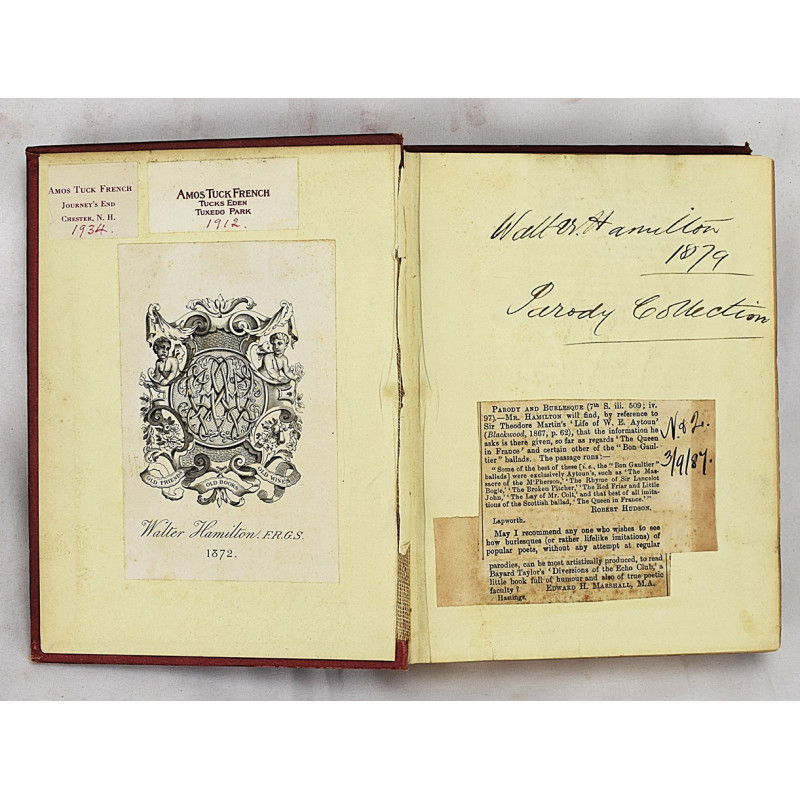 AMOS TUCK FRENCH
JOURNEY'S END
CHESTER, N. H.
1934.
AMOS TUCK FRENCH
TUCKS EDEN
TUXEDO PARK
1912.
OLD FRIENDS
OLD BOOKS
OLD WINES
Walter Hamilton, F.R.G.S.
1872.
Walter Hamilton
1879
Parody Collection
PARODY AND BURLESQUE (7th S. iii. 509; iv.
97).—MR. HAMILTON will find, by reference to
Sir Theodore Martin's 'Life of W. E. Aytoun'
(Blackwood, 1867, p. 62), that the information he
asks is there given, so far as regards 'The Queen
in France' and certain other of the "Bon Gaul-
tier" ballads. The passage runs:—
"Some of the best of these [i.e., the "Bon Gaultier"
ballads] were exclusively Aytoun's, such as 'The Mas-
sacre of the McPherson,' 'The Rhyme of Sir Lancelot
Bogle,' 'The Broken Pitcher,' 'The Red Friar and Little
John,' 'The Lay of Mr. Colt,' and that best of all imita-
tions of the Scottish ballad, 'The Queen in France.'"
ROBERT HUDSON.
Lapworth.
May I recommend any one who wishes to see
how burlesques (or rather lifelike imitations) of
popular poets, without any attempt at regular
parodies, can be most artistically produced, to read
Bayard Taylor's 'Diversions of the Echo Club,' a
little book full of humour and also of true poetic
faculty?
EDWARD H. MARSHALL, M.A.
Hastings.
N & 2.
3/9/87.